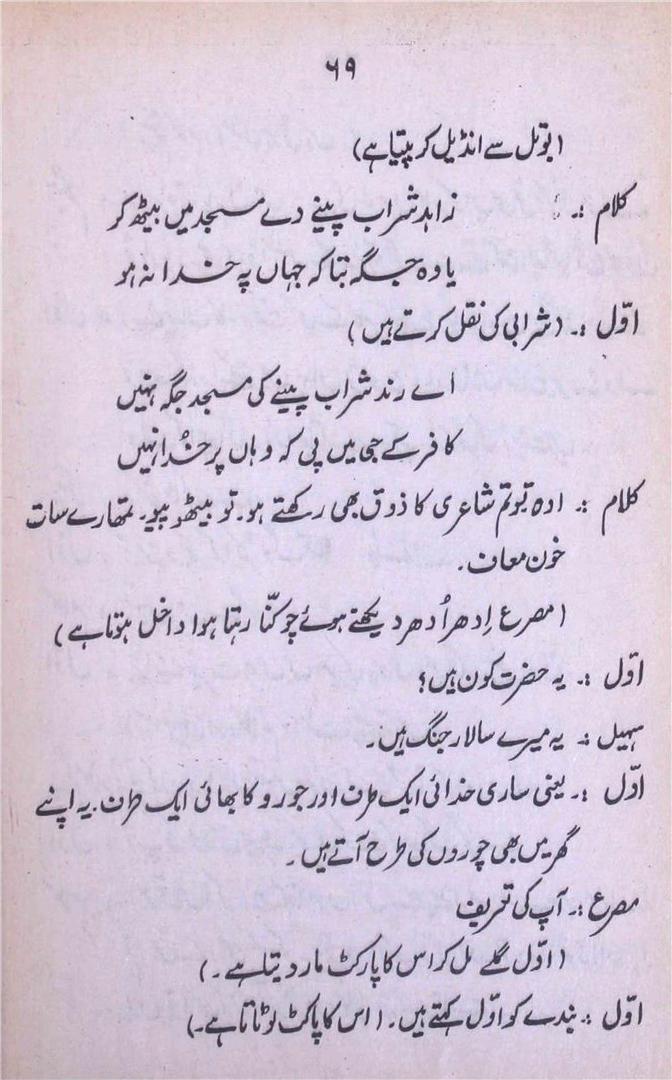 ۶۹
(بوتل سے انڈیل کر پیتا ہے)
کلام :۔ زاہد شراب پینے دے مسجد میں بیٹھ کر
یا وہ جگہ بتا کہ جہاں پہ خدا نہ ہو
اوّل :۔ (شرابی کی نقل کرتے ہیں)
اے رند شراب پینے کی مسجد جگہ نہیں
کافر کے جی میں پی کہ وہاں پر خُدا نہیں
کلام :۔ اوہ تو تم شاعری کا ذوق بھی رکھتے ہو۔ تو بیٹھو پیو۔ تمھارے سات
خون معاف۔
(مصرع اِدھر اُدھر دیکھتے ہوئے چوکنّا رہتا ہوا داخل ہوتا ہے)
اوّل :۔ یہ حضرت کون ہیں؟
سہیل :۔ یہ میرے سالار جنگ ہیں۔
اوّل :۔ یعنی ساری خدائی ایک طرف اور جورو کا بھائی ایک طرف۔ یہ اپنے
گھر میں بھی چوروں کی طرح آتے ہیں۔
مصرع :۔ آپ کی تعریف
(اوّل گلے مل کر اس کا پاکٹ مار دیتا ہے۔)
اوّل :۔ بندے کو اوّل کہتے ہیں۔ (اس کا پاکٹ لوٹاتا ہے۔)